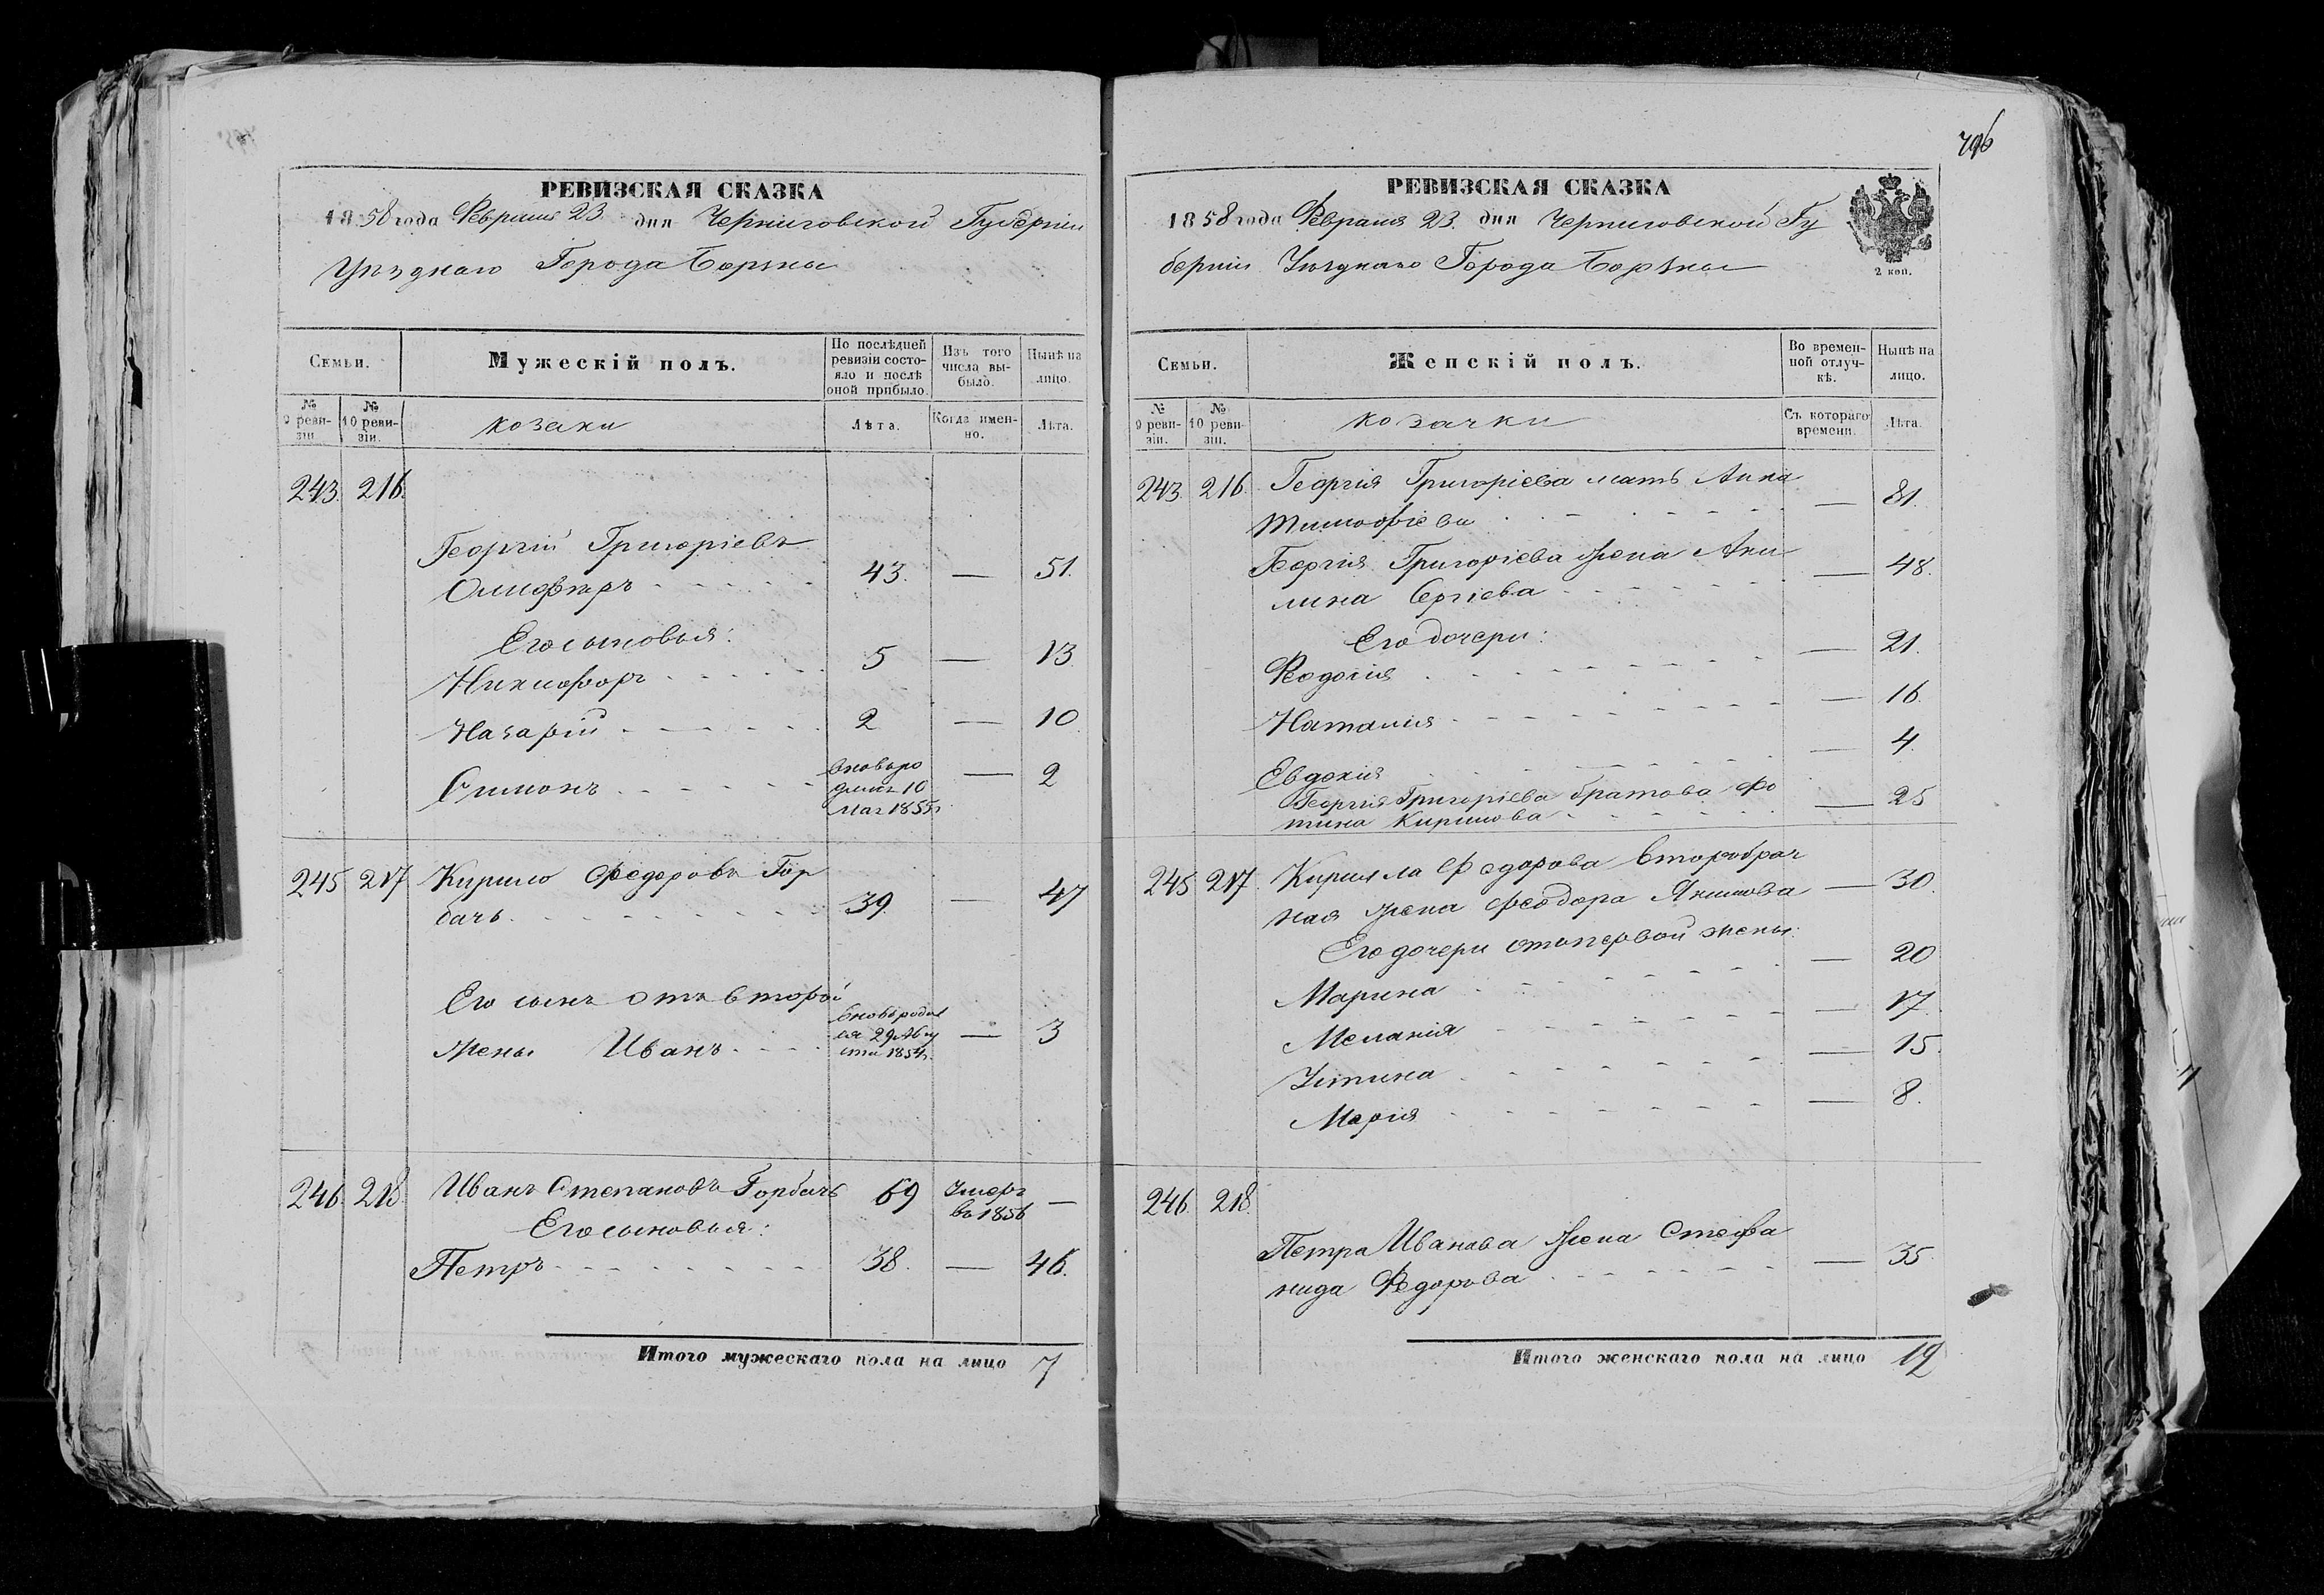 РЕВИЗСКАЯ СКАЗКА
1858 года Февраля 23 дня Черниговской Губерніи
Уѣзднаго Города Борзны
Семьи.
Мужескій полъ.
По послѣдней ревизіи состояло и послѣ оной прибыло.
Изъ того числа выбыло.
Нынѣ на лицо.
№ 9 ревизіи.
№ 10 ревизіи.
козаки
Лѣта.
Когда именно.
Лѣта.
243. 216.
Георгій Григоріевъ
Олиферъ 43. — 51.
Его сыновья:
Никифоръ 5 — 13
Назарій 2 — 10
Симонъ — 2
вновь ро
дился 10
мая 1855г.
245 217 Кирило Федоровъ Гор
бачь 39. — 47
Его сынъ отъ второй
жены Иванъ — 3
вновь родил
ся 29 Авгу
ста 1854г.
246. 218. Иванъ Степановъ Горбачь 69 Умеръ
въ 1856 —
Его сыновья:
Петръ 38. — 46.
Итого мужескаго пола на лицо 7
796
РЕВИЗСКАЯ СКАЗКА
1858 года Февраля 23. дня Черниговской Гу
берніи Уѣзднаго Города Борзны
2 коп.
Семьи.
Женскій полъ.
Во временной отлучкѣ.
Нынѣ на лицо.
№ 9 ревизіи.
№ 10 ревизіи.
козачки
Съ котораго времени.
Лѣта.
243. 216. Георгія Григоріева мать Анна
Тимофіева — 81.
Георгія Григоріева жена Аки
лина Сергіева — 48.
Его дочери:
Феодосія — 21.
Наталия — 16.
Евдокия — 4.
Георгія Григоріева братова Фо
тина Кирилова — 25
245 217. Кирилла Федорова второбрач
ная жена Феодора Якимова — 30.
Его дочери отъ первой жены:
Марина — 20
Меланія — 17.
Устина — 15.
Марія — 8.
246. 218.
Петра Иванова жена Стефа
нида Федорова — 35.
Итого женскаго пола на лицо 12